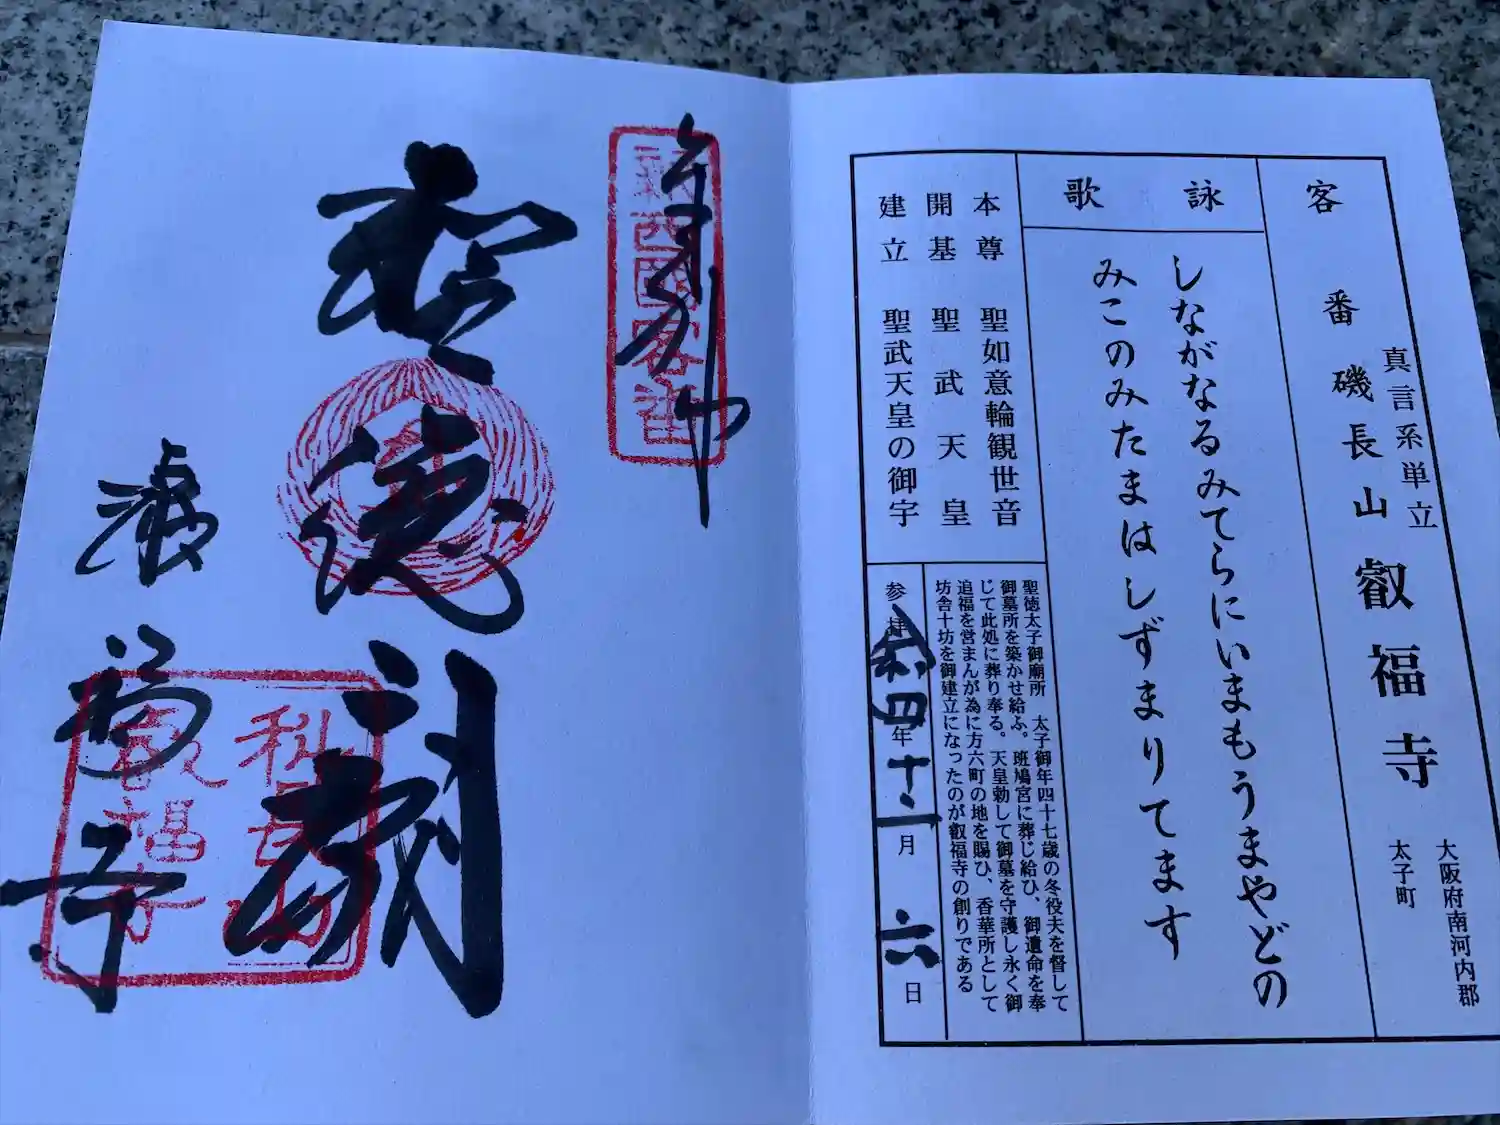 客番
磯長山
叡福寺
真言系単立
大阪府南河内郡
太子町
詠歌
しながなるみてらにいまもうまやどの
みこのみたまはしずまりてます
本尊 聖如意輪観世音
開基 聖武天皇
建立 聖武天皇の御宇
聖徳太子御廟所 太子御年四十七歳の冬役夫を督して
御墓所を築かせ給ふ。班鳩宮に葬じ給ひ、御遺命を奉
じて此処に葬り奉る。天皇勅して御墓を守護し永く御
追福を営まんが為に方六町の地を賜ひ、香華所として
坊舎十坊を御建立になったのが叡福寺の創りである
参拝 令和四年十二月六日
奉拝
新西國客番
聖徳廟
叡福寺
科長山
叡福寺